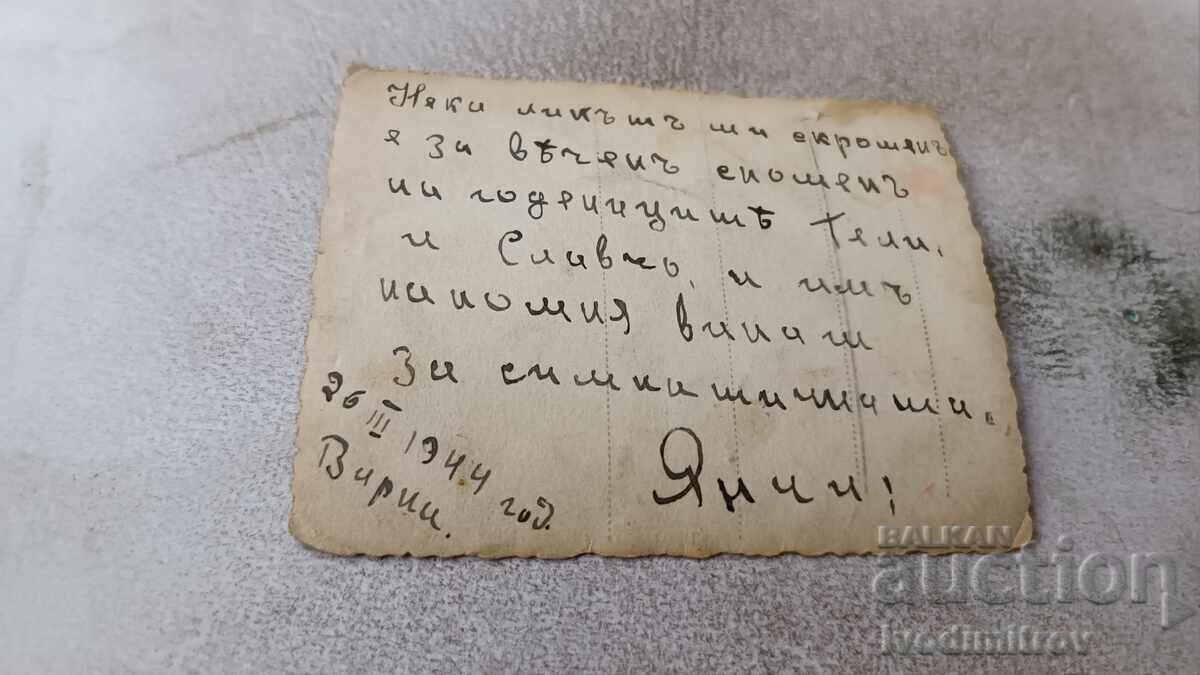 Нека ликътъ ми скроменъ
е за вѣченъ споменъ
на годеницитѣ Гели,
и Славчо, и имъ
напомня винаги
За симпатичната.
Янчи!
26 III 1944 год.
Варна.
BALKAN
auction
ivodimitrov